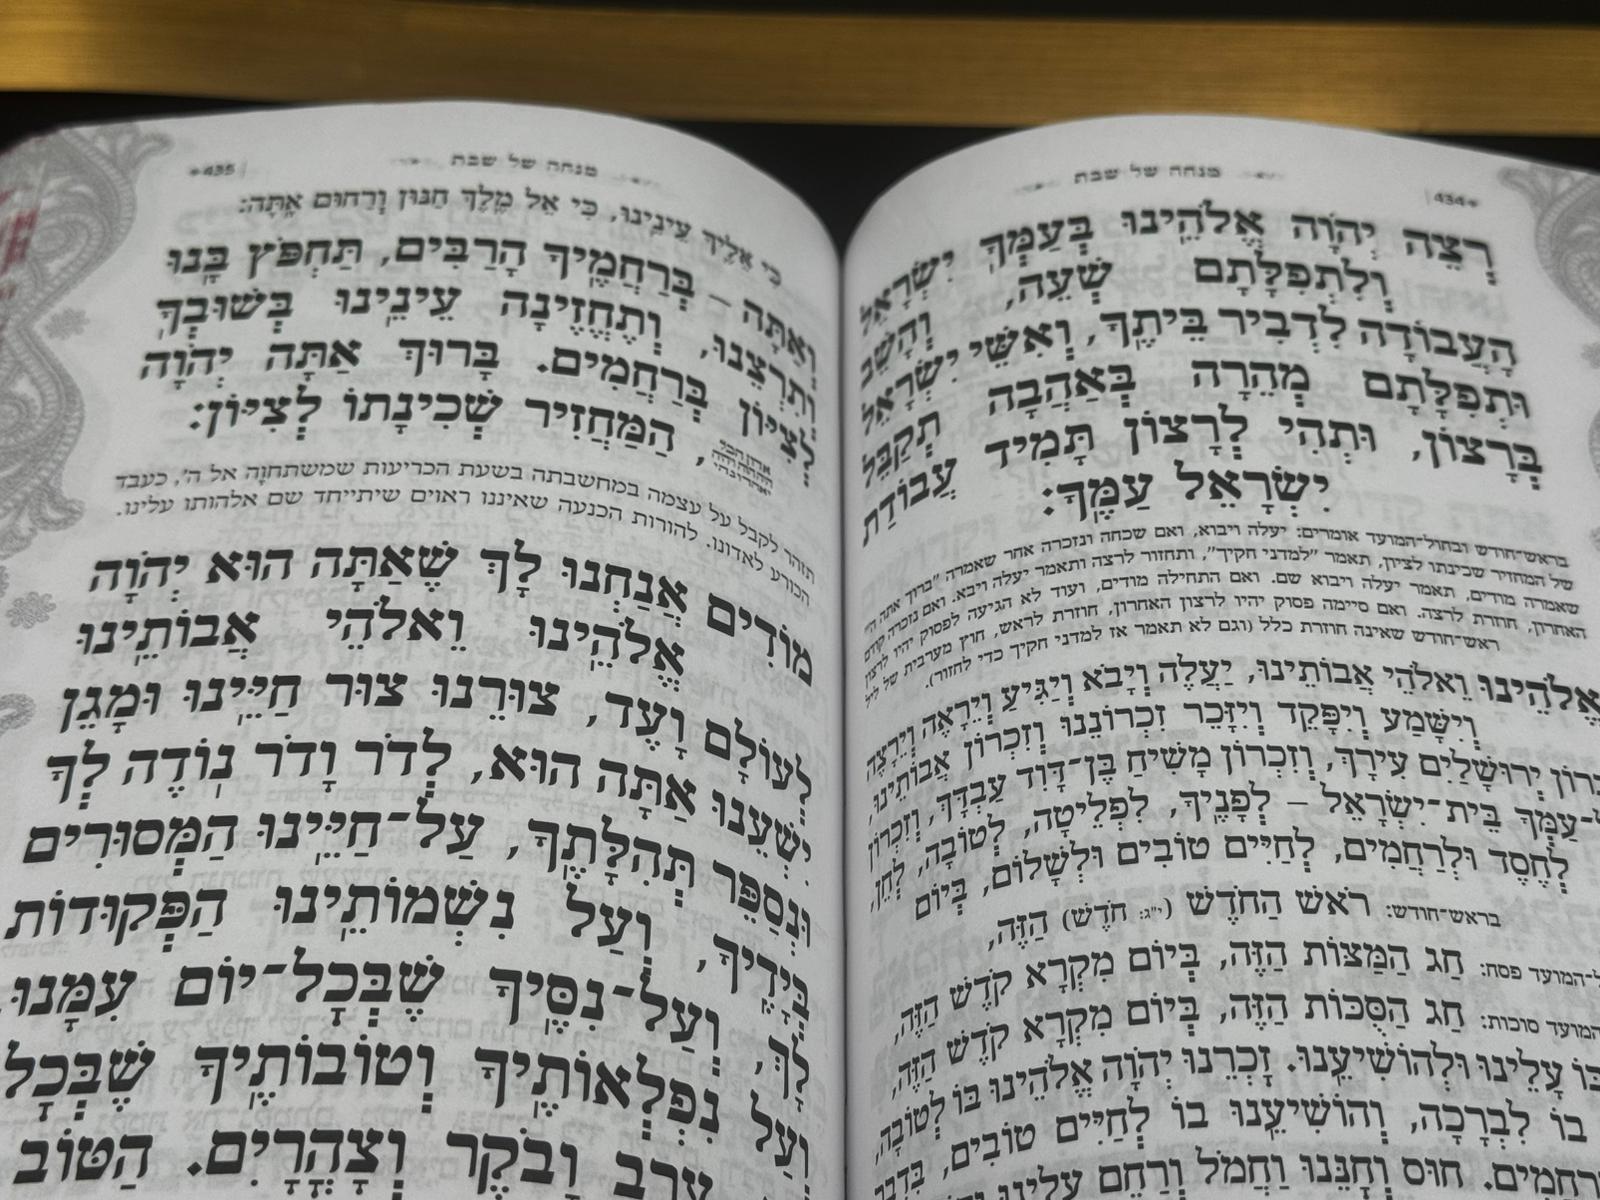 434
מנחה של שבת
רְצֵה יְהֹוָה אֱלֹהֵינוּ בְּעַמְּךָ יִשְׂרָאֵל
וְלִתְפִלָּתָם שְׁעֵה, וְהָשֵׁב
הָעֲבוֹדָה לִדְבִיר בֵּיתֶךָ, וְאִשֵּׁי יִשְׂרָאֵל
וּתְפִלָּתָם מְהֵרָה בְּאַהֲבָה תְקַבֵּל
בְּרָצוֹן, וּתְהִי לְרָצוֹן תָּמִיד עֲבוֹדַת
יִשְׂרָאֵל עַמֶּךָ:
בראש־חודש ובחול־המועד אומרים: יעלה ויבוא, ואם שכחה ונזכרה אחר שאמרה "ברוך אתה ה'"
של המחזיר שכינתו לציון, תאמר "למדני חקיך", ותחזור לרצה ותאמר יעלה ויבא. ואם נזכרה קודם
שאמרה מודים, תאמר יעלה ויבוא שם. ואם התחילה מודים, ועוד לא הגיעה לפסוק יהיו לרצון
האחרון, חוזרת לרצה. ואם סיימה פסוק יהיו לרצון האחרון, חוזרת לראש, חוץ מערבית של ליל
ראש־חודש שאינה חוזרת כלל (וגם לא תאמר אז למדני חקיך כדי לחזור).
אֱלֹהֵינוּ וֵאלֹהֵי אֲבוֹתֵינוּ, יַעֲלֶה וְיָבֹא וְיַגִּיעַ וְיֵרָאֶה וְיֵרָצֶה
וְיִשָּׁמַע וְיִפָּקֵד וְיִזָּכֵר זִכְרוֹנֵנוּ וְזִכְרוֹן אֲבוֹתֵינוּ,
יְרוּשָׁלַיִם עִירָךְ, וְזִכְרוֹן מָשִׁיחַ בֶּן־דָּוִד עַבְדָּךְ, וְזִכְרוֹן
עַמְּךָ בֵּית־יִשְׂרָאֵל – לְפָנֶיךָ, לִפְלֵיטָה, לְטוֹבָה, לְחֵן,
לְחֶסֶד וּלְרַחֲמִים, לְחַיִּים טוֹבִים וּלְשָׁלוֹם, בְּיוֹם
בראש־חודש: רֹאשׁ הַחֹדֶשׁ (י"ג: חֹדֶשׁ) הַזֶּה,
המועד פסח: חַג הַמַּצּוֹת הַזֶּה, בְּיוֹם מִקְרָא קֹדֶשׁ הַזֶּה,
המועד סוכות: חַג הַסֻּכּוֹת הַזֶּה, בְּיוֹם מִקְרָא קֹדֶשׁ הַזֶּה,
בּוֹ עָלֵינוּ וּלְהוֹשִׁיעֵנוּ. זָכְרֵנוּ יְהֹוָה אֱלֹהֵינוּ בּוֹ לְטוֹבָה,
בוֹ לִבְרָכָה, וְהוֹשִׁיעֵנוּ בוֹ לְחַיִּים טוֹבִים, בִּדְבַר
וְרַחֲמִים. חוּס וְחָנֵּנוּ וַחֲמֹל וְרַחֵם עָלֵינוּ
435
מנחה של שבת
כִּי אֵלֶיךָ עֵינֵינוּ, כִּי אֵל מֶלֶךְ חַנּוּן וְרַחוּם אָתָּה:
וְאַתָּה – בְּרַחֲמֶיךָ הָרַבִּים, תַּחְפֹּץ בָּנוּ
וְתִרְצֵנוּ, וְתֶחֱזֶינָה עֵינֵינוּ בְּשׁוּבְךָ
לְצִיּוֹן בְּרַחֲמִים. בָּרוּךְ אַתָּה יְהֹוָה
, הַמַּחֲזִיר שְׁכִינָתוֹ לְצִיּוֹן:
תזהר לקבל על עצמה במחשבתה בשעת הכריעות שמשתחוה אל ה', כעבד
הכורע לאדונו. להורות הכנעה שאיננו ראוים שיתייחד שם אלהותו עלינו.
מוֹדִים אֲנַחְנוּ לָךְ שֶׁאַתָּה הוּא יְהֹוָה
אֱלֹהֵינוּ וֵאלֹהֵי אֲבוֹתֵינוּ
לְעוֹלָם וָעֶד, צוּרֵנוּ צוּר חַיֵּינוּ וּמָגֵן
יִשְׁעֵנוּ אַתָּה הוּא, לְדֹר וָדֹר נוֹדֶה לְּךָ
וּנְסַפֵּר תְּהִלָּתֶךָ, עַל־חַיֵּינוּ הַמְּסוּרִים
בְּיָדֶיךָ, וְעַל נִשְׁמוֹתֵינוּ הַפְּקוּדוֹת
לָךְ, וְעַל־נִסֶּיךָ שֶׁבְּכָל־יוֹם עִמָּנוּ
וְעַל נִפְלְאוֹתֶיךָ וְטוֹבוֹתֶיךָ שֶׁבְּכָל
עֶרֶב וָבֹקֶר וְצָהֳרָיִם. הַטּוֹב